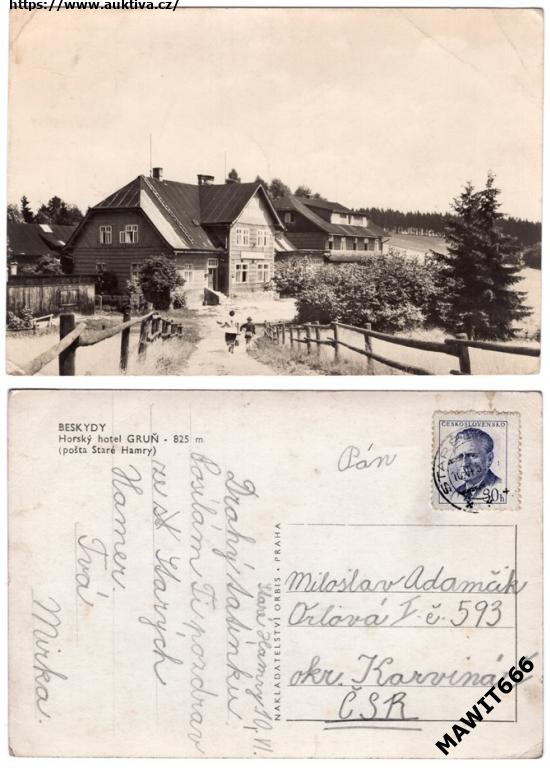 https://www.auktiva.cz/
BESKYDY
Horský hotel GRUŇ - 825 m
(pošta Staré Hamry)
Staré Hamry 10. VI.
Drahý tatínku
Posílám Ti pozdrav
ze Starých
Hamer.
Tvá
Mirka.
NAKLADATELSTVÍ ORBIS · PRAHA
ČESKOSLOVENSKO
30h
Pán
Miloslav Adamčík
Orlová I. č. 593
okr. Karviná
ČSR
MAWIT666